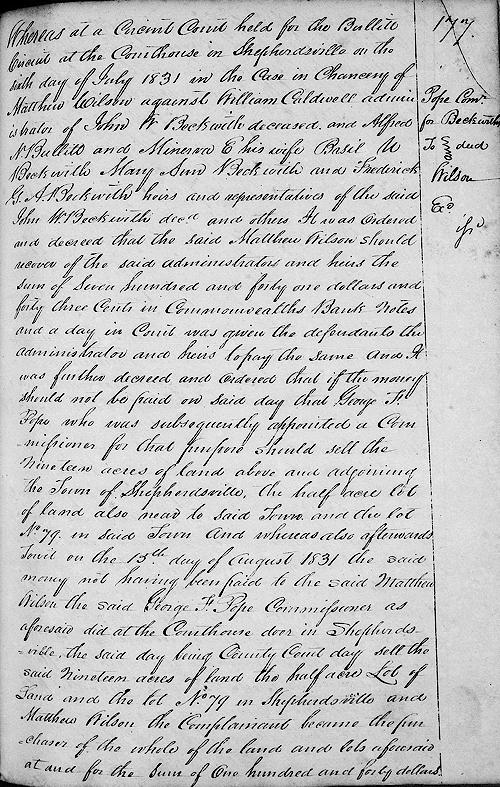 177.
Whereas at a Circuit Court held for the Bullitt
Circuit at the Courthouse in Shepherdsville on the
sixth day of July 1831 in the Case in Chancery of
Matthew Wilson against William Caldwell admin
istrator of John W Beckwith deceased and Alfred
N. Bullitt and Minerva E his wife Basil W
Beckwith Mary Ann Beckwith and Frederick
G. A. Beckwith heirs and representatives of the said
John W Beckwith decd and others It was Ordered
and decreed that the said Matthew Wilson should
recover of the said administrators and heirs the
sum of Seven hundred and forty one dollars and
forty three Cents in Commonwealths Bank Notes
and a day in Court was given the defendants the
administrator and heirs to pay the same And It
was further decreed and ordered that if the money
should not be paid on said day that George F.
Pope who was subsequently appointed a Com
missioner for that purpose should sell the
Nineteen acres of land above and adjoining
the Town of Shepherdsville, the half acre lot
of land also near to said Town and the lot
No 79. in said Town And whereas also afterwards
Towit on the 15th day of August 1831 the said
money not having been paid to the said Matthew
Wilson the said George F. Pope Commissioner as
aforesaid did at the Courthouse door in Shepherds
-ville, the said day being County Court day sell the
said Nineteen acres of land the half acre Lot of
Land and the lot No 79 in Shepherdsville and
Matthew Wilson the Complainant became the pur
chaser of the whole of the land and lots aforesaid
at and for the sum of One hundred and forty dollars.
Pope Comr.
for Beckwith
To deed
Wilson